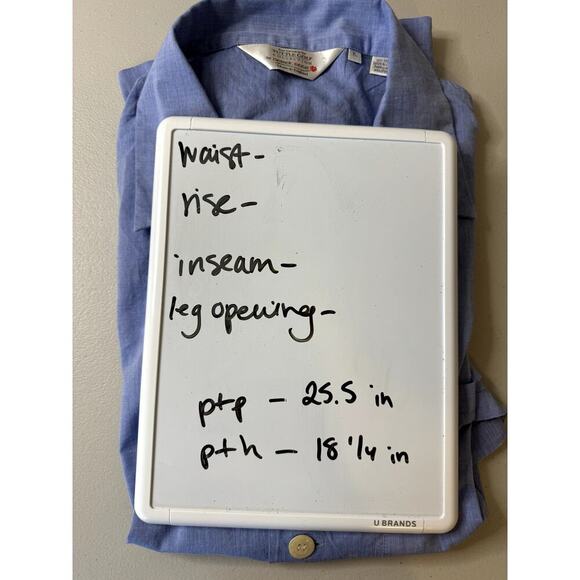 waist-
rise-
inseam-
leg opening-
ptp - 25.5 in
pth - 18 1/4 in
U BRANDS